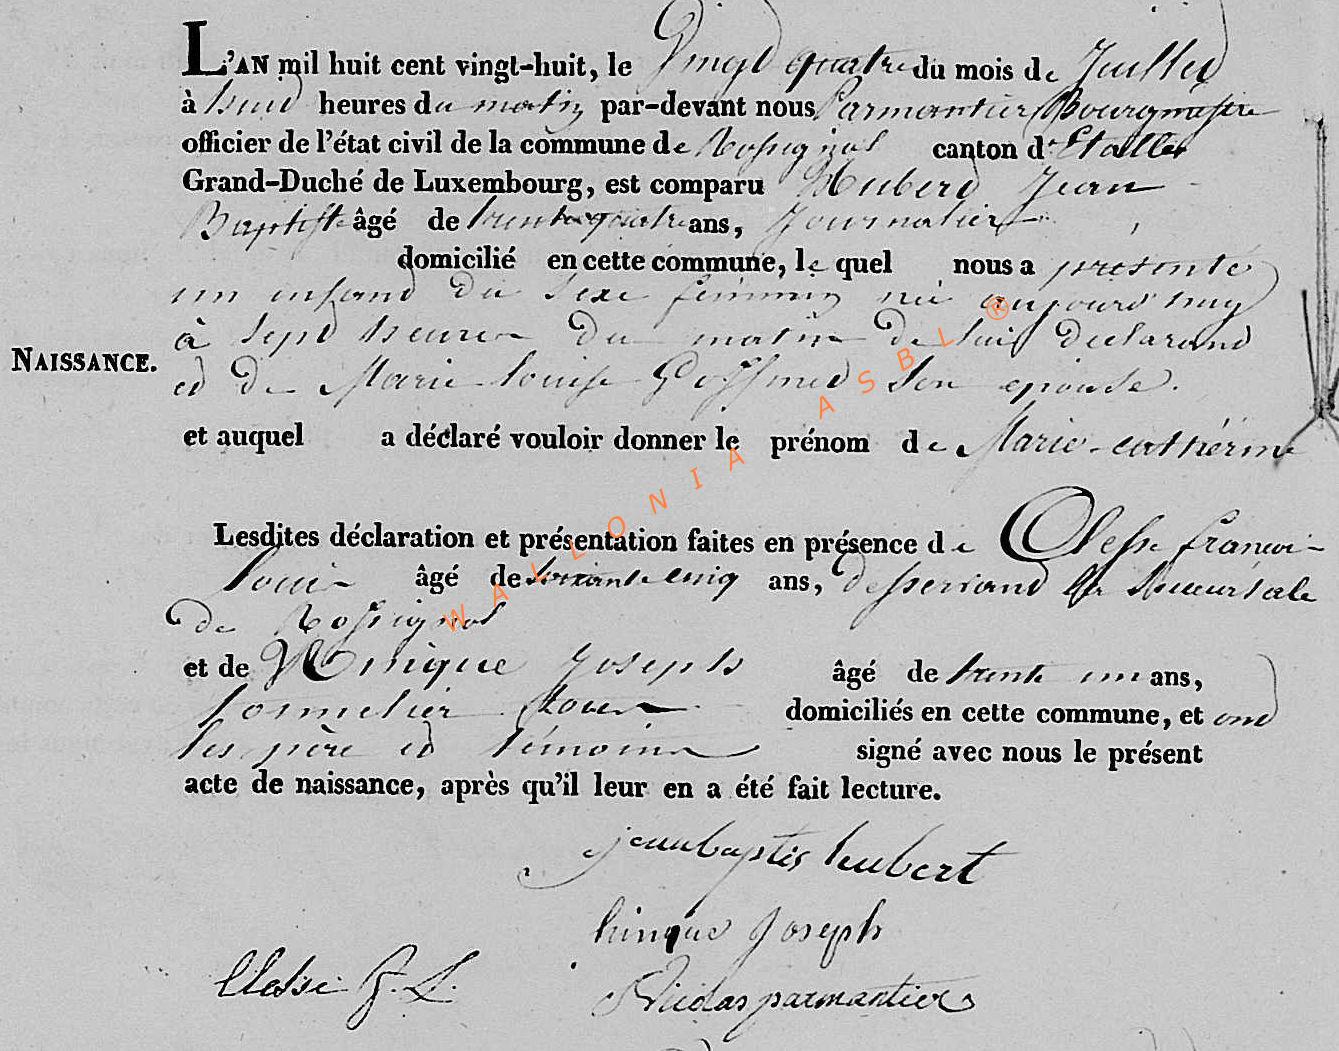 L'AN mil huit cent vingt-huit, le Vingt quatre du mois de Juillet
à huit heures du matin par-devant nous Parmantier Bourgmestre
officier de l'état civil de la commune de Rossignol canton d'Etalle
Grand-Duché de Luxembourg, est comparu Hubert Jean
Baptiste âgé de trente quatre ans, Journalier
domicilié en cette commune, le quel nous a présenté
un enfant du sexe féminin née aujourd'huy
à sept heures du matin de luit declarant
NAISSANCE.
et de Marie Louise Goffinet son epouse.
et auquel a déclaré vouloir donner le prénom de Marie-catherine
Lesdites déclaration et présentation faites en présence de Clesse francois
Louis âgé de soixante cinq ans, desservant la succursale
de Rossignol
et de Hinique Joseph âgé de trente un ans,
domiciliés en cette commune, et ont
les père et témoins signé avec nous le présent
acte de naissance, après qu'il leur en a été fait lecture.
jean baptis hubert
hinque Joseph
Clesse F. L.
Nicolas parmantier
WALLONIA ASBL ®